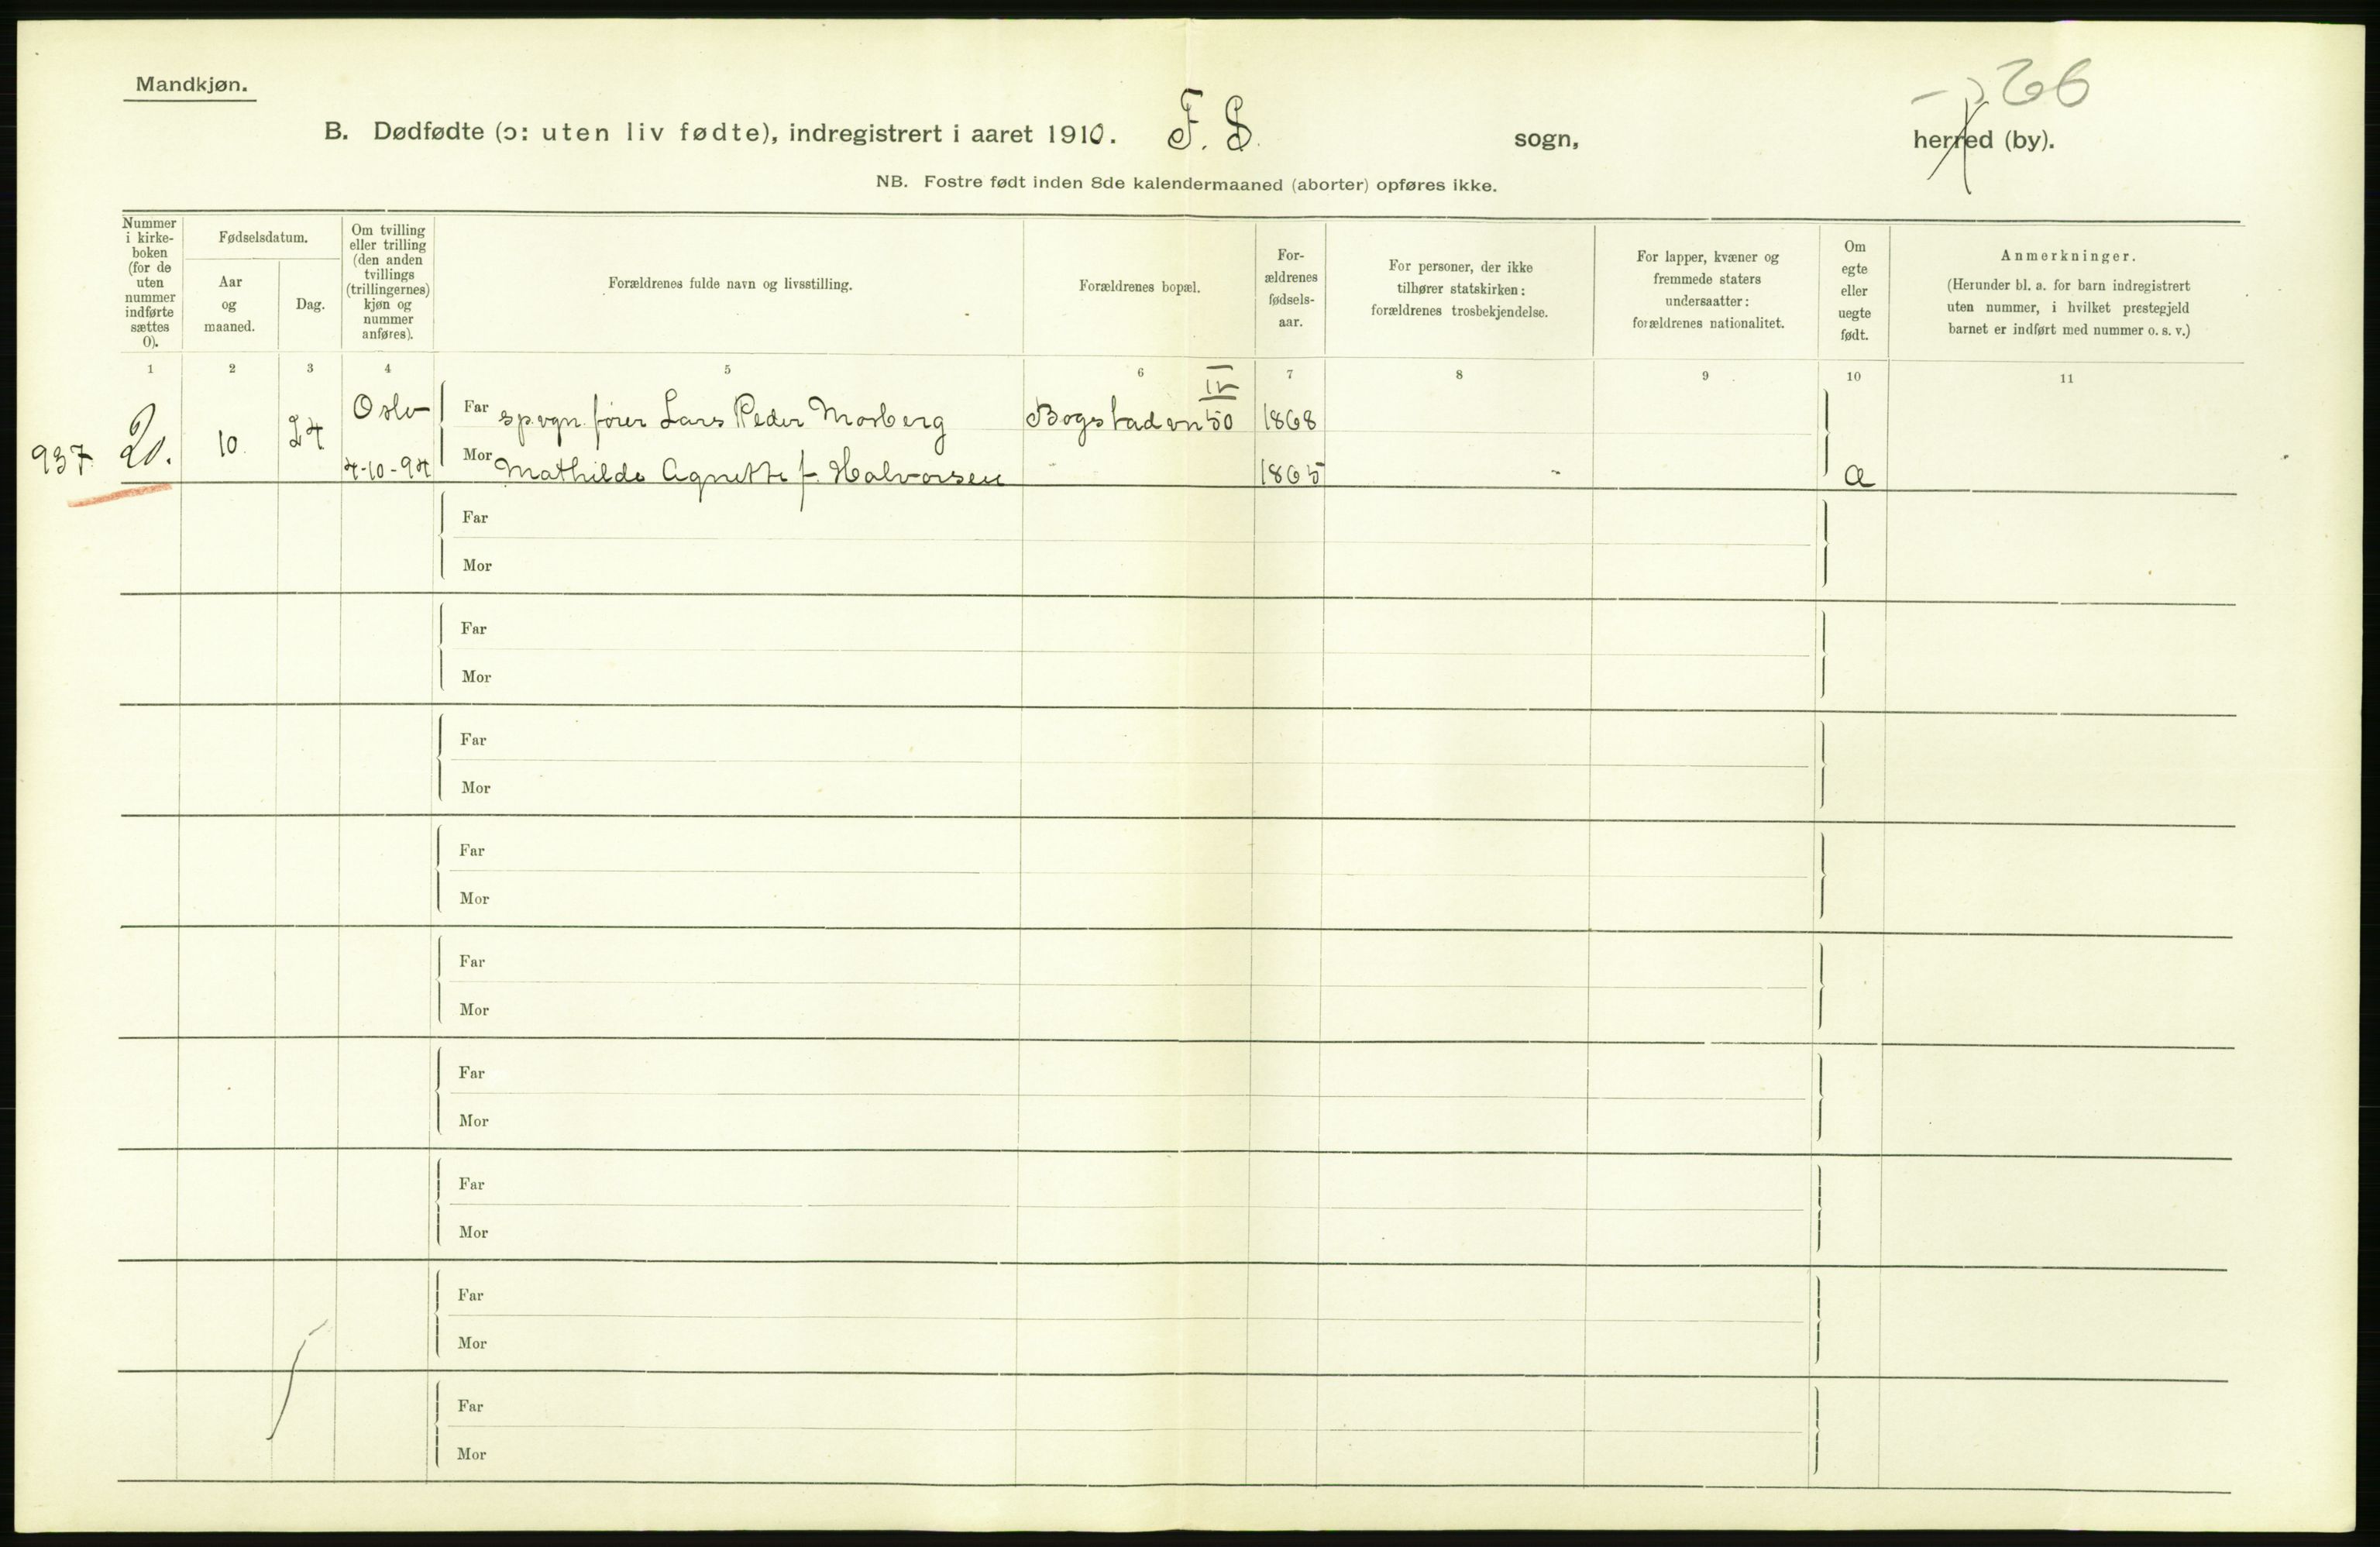 Mandkjøn.
B. Dødfødte (ɔ: uten liv fødte), indregistrert i aaret 1910. F. S. sogn, herred (by).
NB. Fostre født inden 8de kalendermaaned (aborter) opføres ikke.
Nummer
i kirke-
boken
(for de
uten
nummer
indførte
sættes
0).
Fødselsdatum.
Aar
og
maaned.
Dag.
Om tvilling
eller trilling
(den anden
tvillings
(trillingernes)
kjøn og
nummer
anføres).
Forældrenes fulde navn og livsstilling.
Forældrenes bopæl.
For-
ældrenes
fødsels-
aar.
For personer, der ikke
tilhører statskirken:
forældrenes trosbekjendelse.
For lapper, kvæner og
fremmede staters
undersaatter:
forældrenes nationalitet.
Om
egte
eller
uegte
født.
Anmerkninger.
(Herunder bl. a. for barn indregistrert
uten nummer, i hvilket prestegjeld
barnet er indført med nummer o. s. v.)
1 2 3 4 5 6 7 8 9 10 11
937. 20. 10. 24 Oslo Far spvgn. fører Lars Peder Morberg Bogstadvn 50 IV 1868
4-10-94 Mor Mathilde Agnette f. Halvorsen - 1865 - Æ
Far
Mor
Far
Mor
Far
Mor
Far
Mor
Far
Mor
Far
Mor
Far
Mor
Far
Mor
Far
Mor